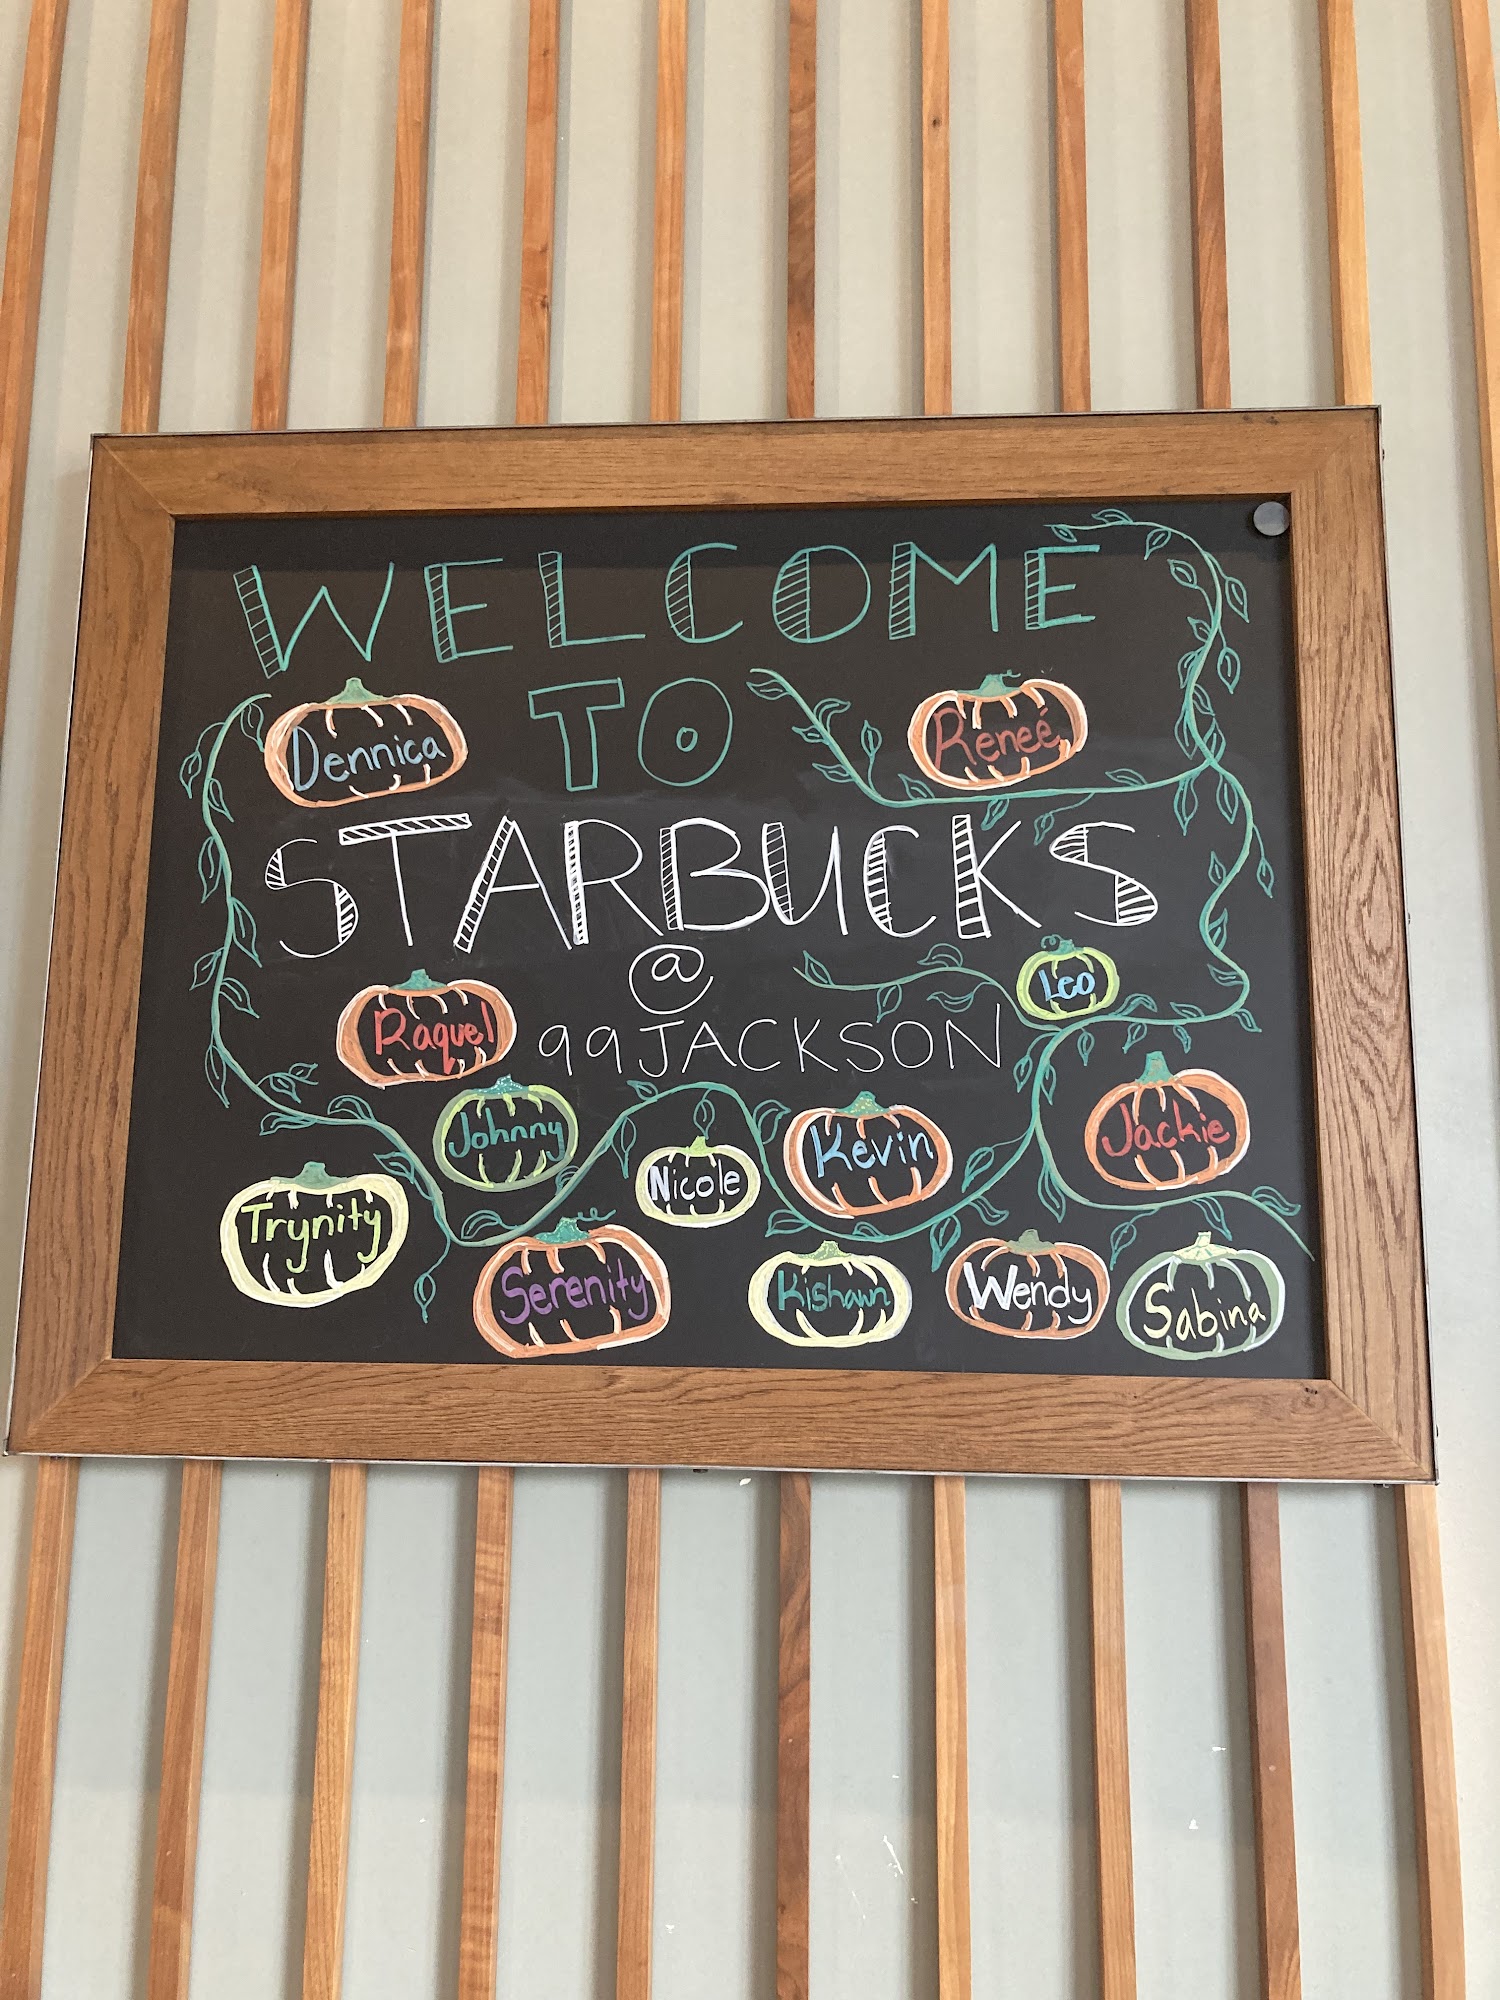 WELCOME
Dennica
TO
Reneé
STARBUCKS
@
Leo
Raquel
99 JACKSON
Johnny
Nicole
Kevin
Jackie
Trynity
Serenity
Kishawn
Wendy
Sabina